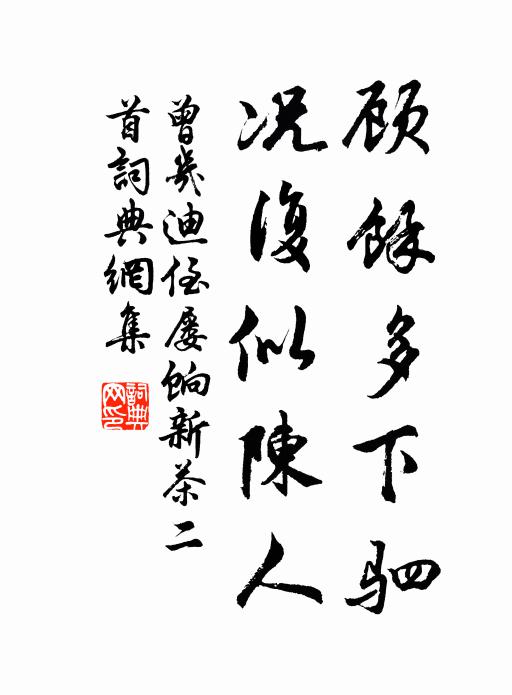 顾餘多下驷
况復似陳人
曾幾迪侄屡餉新茶二
首詞典網集
詞典网印